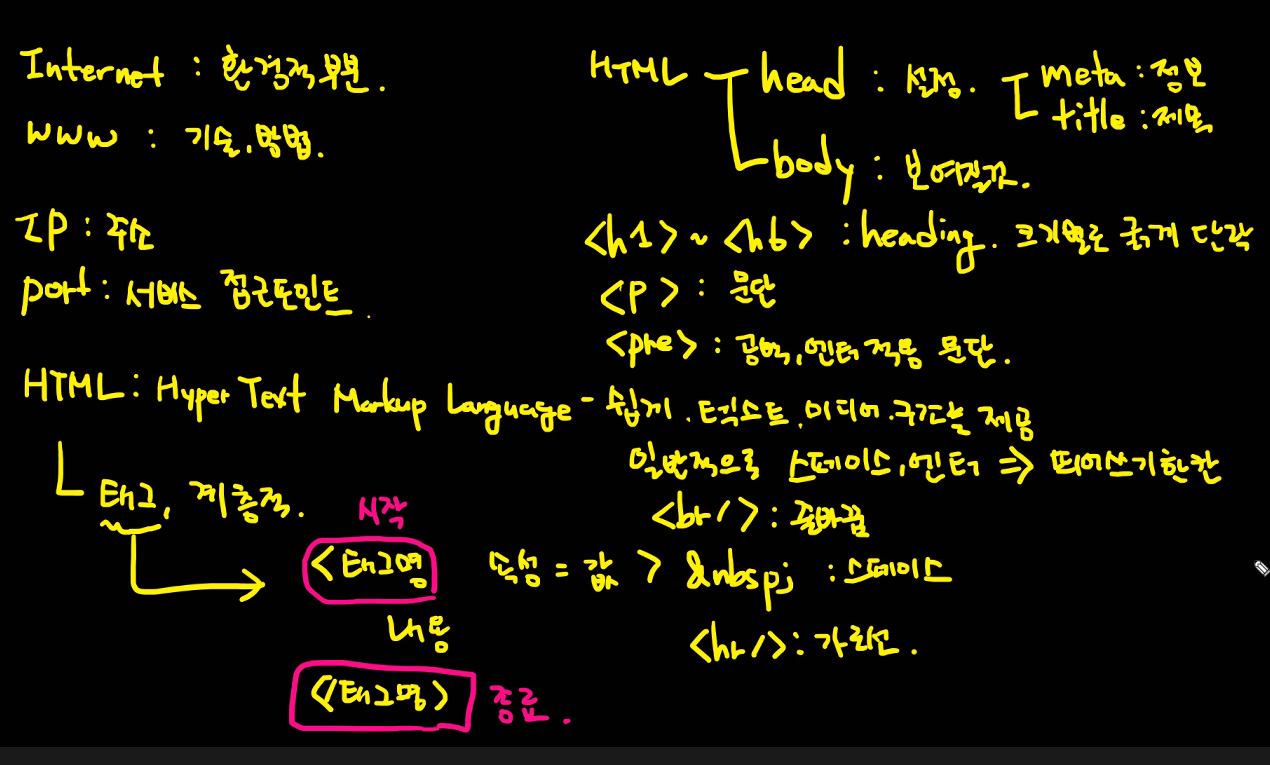 Internet : 환경적 부분.
WWW : 기술, 방법.
IP : 주소
port : 서비스 접근포인트.
HTML : Hyper Text Markup Language - 쉽게. 텍스트, 미디어. 구조를 제공
태그, 계층적.
시작
<태그명 속성 = 값 >
내용
</태그명>
종료.
HTML
head : 설정.
meta : 정보
title : 제목
body : 보여질곳.
<h1> ~ <h6> : heading. 크기별로 굵게 단락
<p> : 문단
<pre> : 공백, 엔터 적용 문단.
일반적으로 스페이스, 엔터 => 띄어쓰기한칸
<br/> : 줄바꿈
&nbsp; : 스페이스
<hr/> : 가로선.